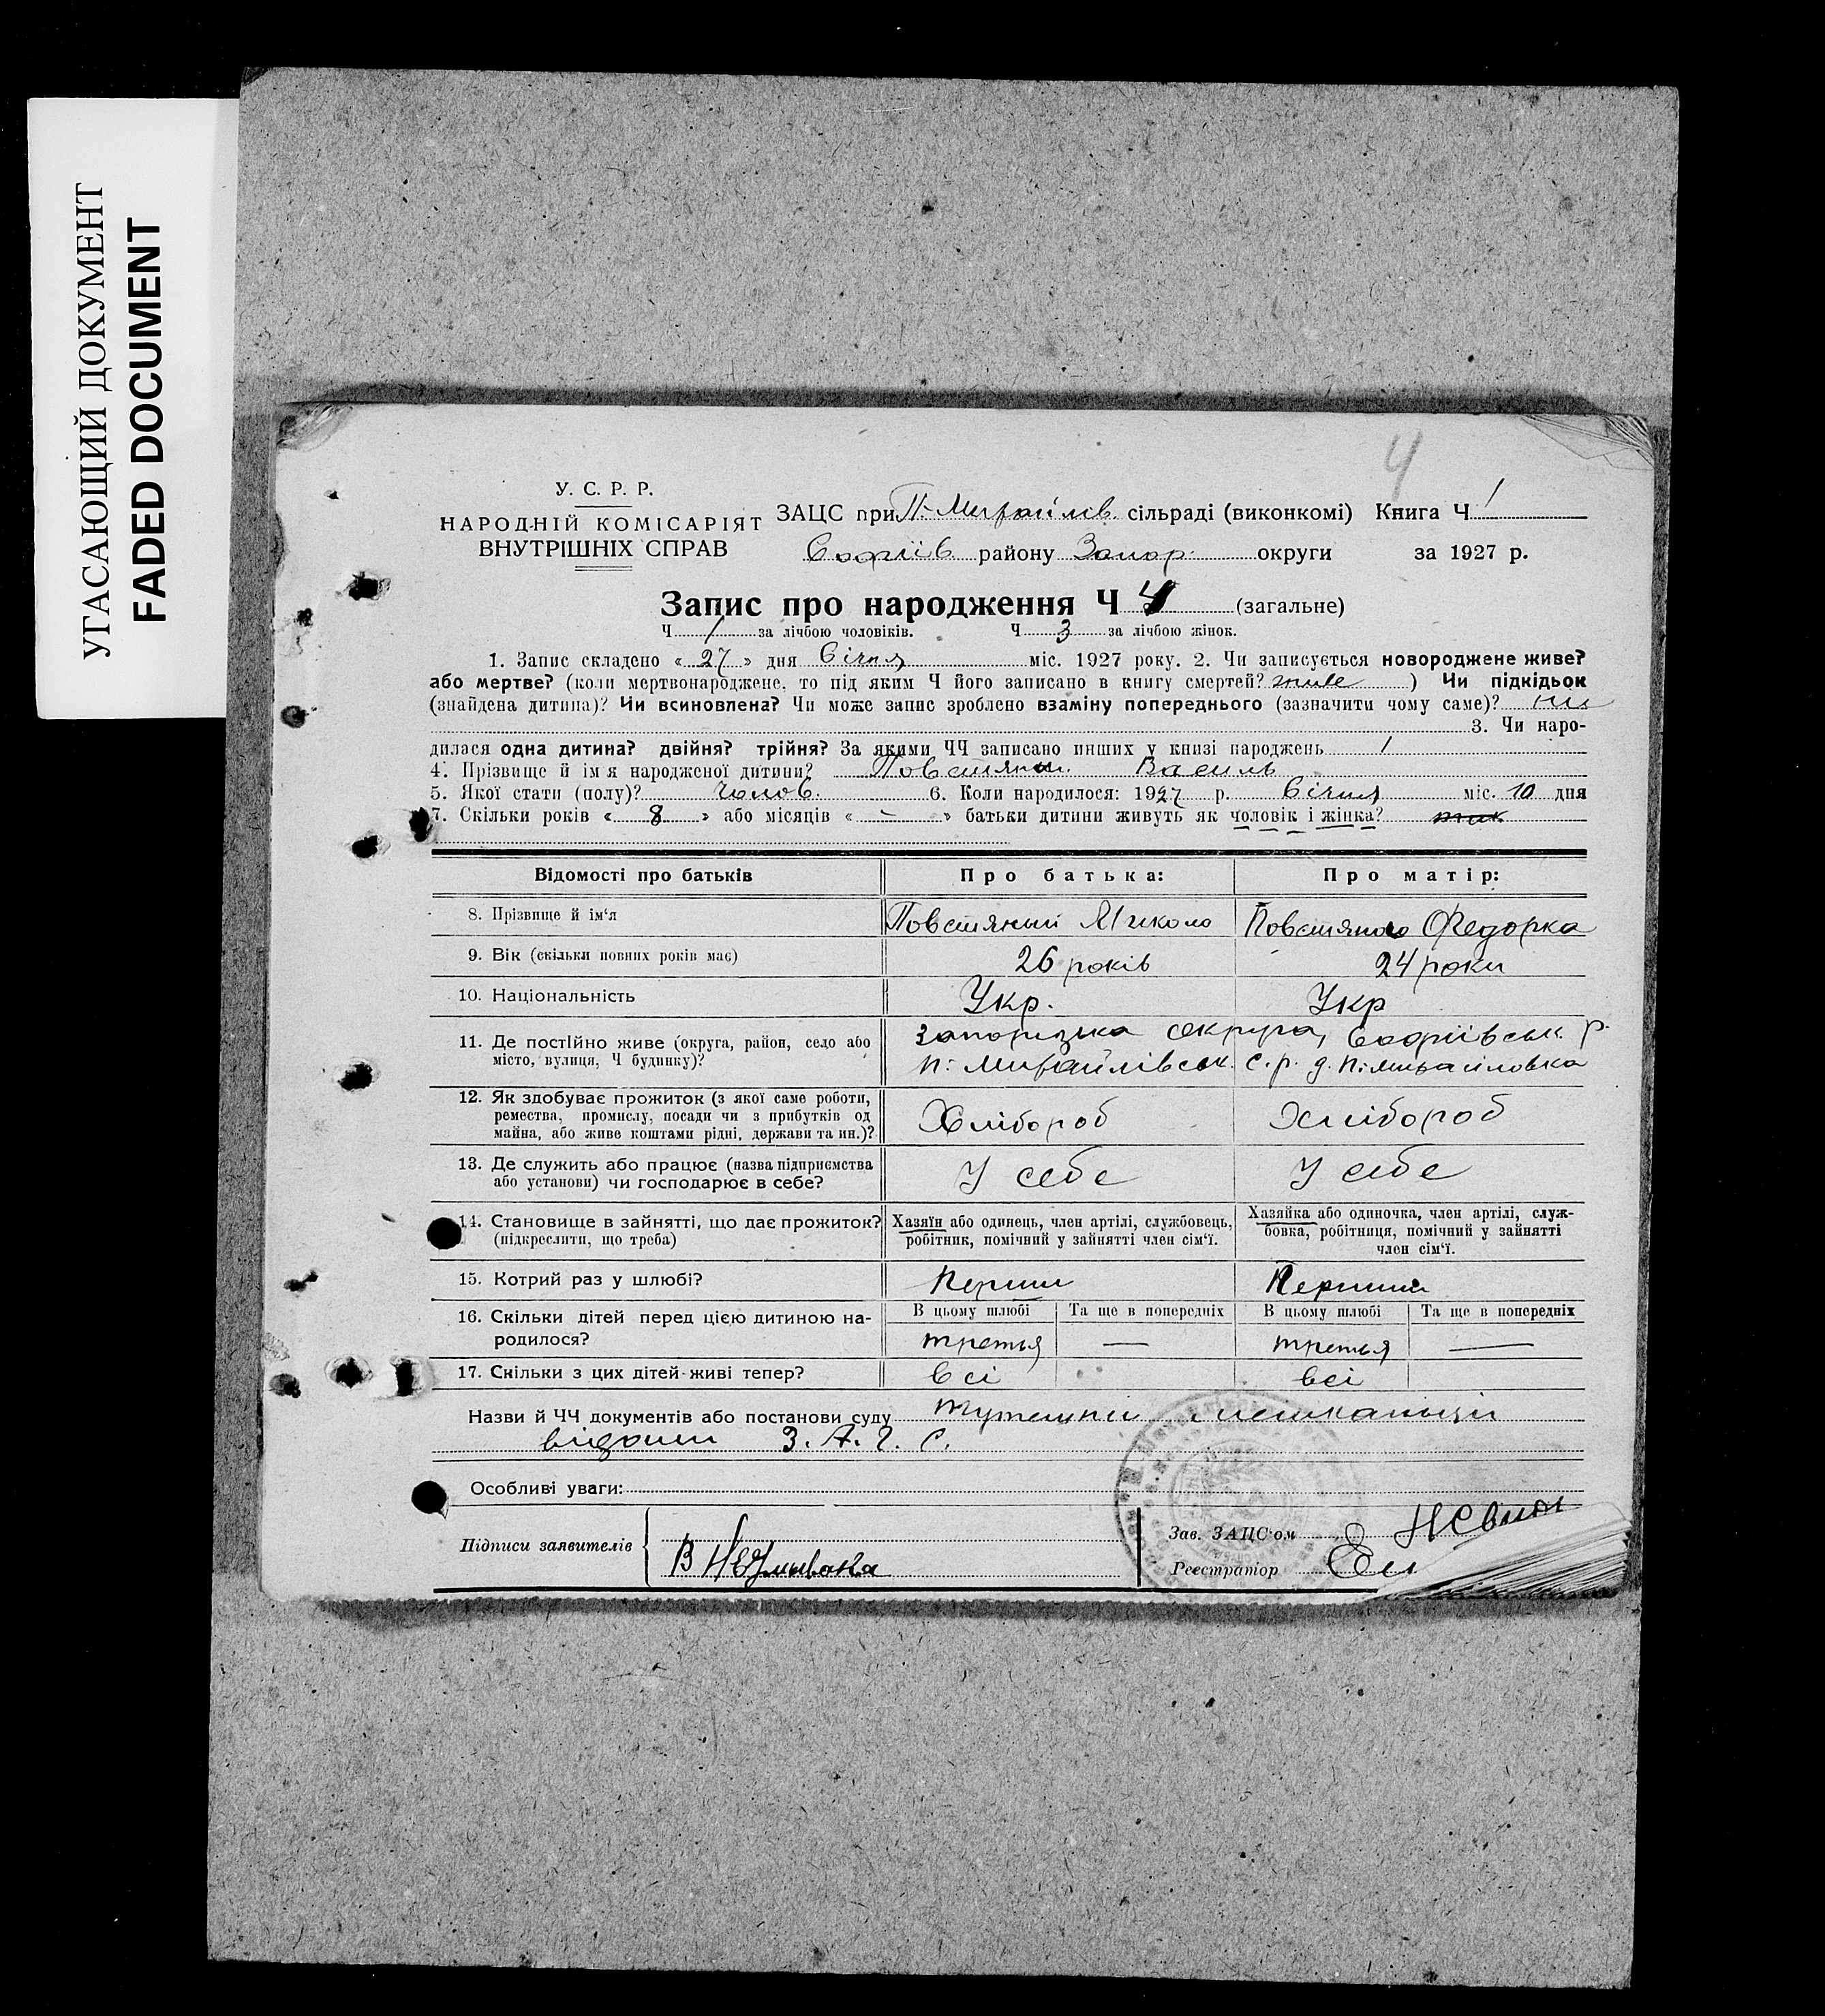 УГАСАЮЩИЙ ДОКУМЕНТ
FADED DOCUMENT
4
У. С. Р. Р.
НАРОДНІЙ КОМІСАРІЯТ
ВНУТРІШНІХ СПРАВ
ЗАЦС при П-Михайлів. сільраді (виконкомі) Книга Ч 1
Софіїв. району Запор. округи за 1927 р.
Запис про народження Ч 4 (загальне)
Ч 1 за лічбою чоловіків. Ч 3 за лічбою жінок.
1. Запис складено « 27 » дня Січня міс. 1927 року. 2. Чи записується новороджене живе?
або мертве? (коли мертвонароджене, то під яким Ч його записано в книгу смертей? живе ) Чи підкідьок
(знайдена дитина)? Чи всиновлена? Чи може запис зроблено взаміну попереднього (зазначити чому саме)? ні
3. Чи наро-
дилася одна дитина? двійня? трійня? За якими ЧЧ записано инших у книзі народжень 1
4. Прізвище й ім'я народженої дитини? Повстяний Василь
5. Якої стати (полу)? Чолов. 6. Коли народилося: 1927 р. Січня міс. 10 дня
7. Скільки років « 8 » або місяців « - » батьки дитини живуть як чоловік і жінка? так
Відомості про батьків Про батька: Про матір:
8. Прізвище й ім'я Повстяный Микола Повстяна Федорка
9. Вік (скільки повних років має) 26 років 24 роки
10. Національність Укр. Укр
11. Де постійно живе (округа, район, село або Запорізька округа, Софіївськ. р.
місто, вулиця, Ч будинку)? п: Михайлівськ. с.р. д. П: Михайловка
12. Як здобуває прожиток (з якої саме роботи,
ремества, промислу, посади чи з прибутків од Хлібороб Хлібороб
майна, або живе коштами рідні, держави та ин.)?
13. Де служить або працює (назва підприємства У себе У себе
або установи) чи господарює в себе?
14. Становище в зайнятті, що дає прожиток? Хазяїн або одинець, член артілі, службовець, Хазяйка або одиночка, член артілі, служ-
(підкреслити, що треба) робітник, помічний у зайнятті член сім'ї. бовка, робітниця, помічний у зайнятті
член сім'ї.
15. Котрий раз у шлюбі? Перший Перший
16. Скільки дітей перед цією дитиною на- В цьому шлюбі Та ще в попередніх В цьому шлюбі Та ще в попередніх
родилося? третья — третья —
17. Скільки з цих дітей живі тепер? всі всі
Назви й ЧЧ документів або постанови суду тутешні мешканьці
відоми З. А. Г. С.
Особливі уваги:
Підписи заявителів
Зав. ЗАЦС'ом
Реєстратор